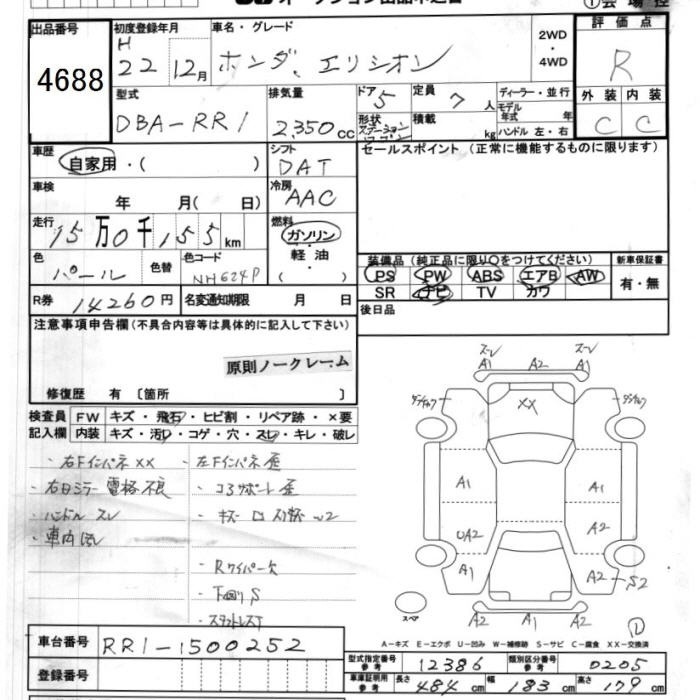 出品番号 初度登録年月 車名・グレード 評価点
4688 H 22 12月 ホンダ、エリシオン 2WD・4WD R
型式 排気量 ドア 5 定員 7人 ディーラー・並行 外装 内装
DBA-RR1 2,350cc 形状 ステーションワゴン 積載 kg モデル年式 年 ハンドル 左・右 C C
車歴 シフト セールスポイント (正常に機能するものに限ります)
自家用・( ) DAT
車検 年 月( 日) 冷房 AAC
走行 15万0千155km 燃料 ガソリン・軽油・( )
色 パール 色替 色コード NH624P
装備品 (純正品に限り○をつけてください) 新車保証書
PS PW ABS エアB AW 有・無
SR ナビ TV カワ
R券 14260円 名変通知期限 月 日 後日品
注意事項申告欄(不具合内容等は具体的に記入して下さい)
原則ノークレーム
修復歴 有 〔箇所 〕
検査員 FW キズ・飛石・ヒビ割・リペア跡・×要
記入欄 内装 キズ・汚レ・コゲ・穴・スレ・キレ・破レ
・右Fインパネ XX ・左Fインパネ 歪
・右ドミラー 電格不良 ・コアサポート 歪
・ハンドル スレ
・車内
・Rワイパー欠
・下回りS
スレ A1 A2 A1 スレ
XX
A1 A1
UA2 A2
A1 A2 S2
スペア A2 A1 A1
①
A-キズ E-エクボ U-凹み W-補修跡 S-サビ C-腐食 XX-交換済
車台番号 RR1-1500252
登録番号
型式指定番号 参考 12386 類別区分番号 参考 0205
車庫証明用 参考 長さ 484cm 幅 183cm 高さ 179cm